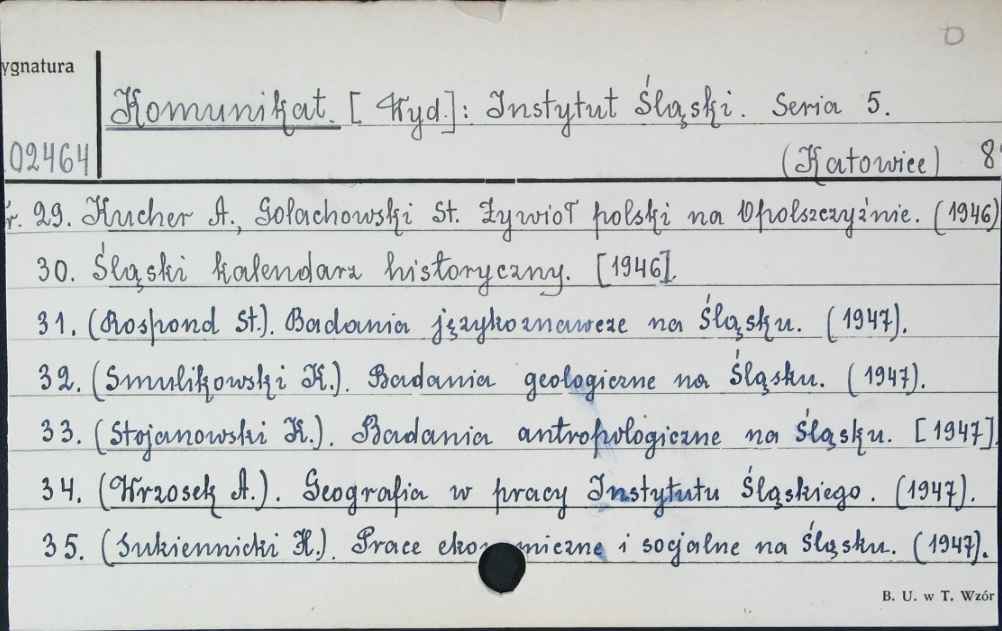 ygnatura
Komunikat. [Wyd.]: Instytut Śląski. Seria 5.
02464
(Katowice) 8°
r. 29. Kucher A., Gołachowski St. Żywioł polski na Opolszczyźnie. (1946)
30. Śląski kalendarz historyczny. [1946].
31. (Rospond St.). Badania językoznawcze na Śląsku. (1947).
32. (Smulikowski K.). Badania geologiczne na Śląsku. (1947).
33. (Stojanowski K.). Badania antropologiczne na Śląsku. [1947]
34. (Wrzosek A.). Geografia w pracy Instytutu Śląskiego. (1947).
35. (Sukiennicki H.). Prace ekonomiczne i socjalne na Śląsku. (1947).
B. U. w T. Wzór